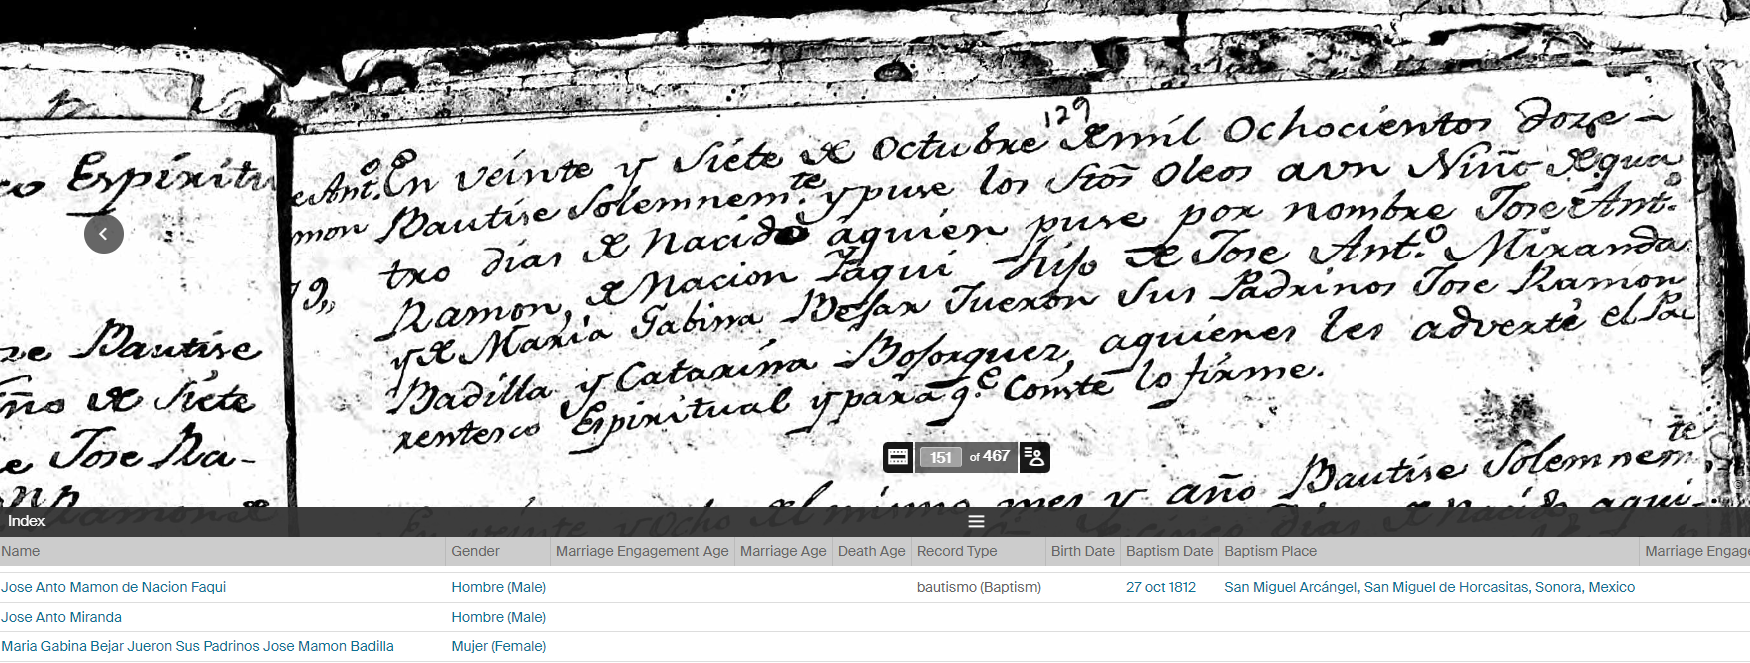 129
co Espiritu
e Ant.o
mon
19,,
En veinte y Siete de Octubre de mil Ochocientos doze
Bautise Solemnem.te y puse los Stos Oleos a un Niño de qua
tro dias de Nacido aquien puse por nombre Jose Ant.o
Ramon, de Nacion Jaqui Hijo de Jose Ant.o Miranda
y de Maria Gabina Bejar Fueron Sus Padrinos Jose Ramon
Badilla y Catarina Bojorquez, aquienes les adverti el Pa
rentesco Espiritual y para q.e Conste lo firme.
ze Bautise
ño de Siete
e Jose Ra-
En veinte y Ocho del mismo mes y año Bautise Solemnem.te
de cinco dias de Nacido aqui-
151 of 467
Index
Name Gender Marriage Engagement Age Marriage Age Death Age Record Type Birth Date Baptism Date Baptism Place Marriage Engage
Jose Anto Mamon de Nacion Faqui Hombre (Male) bautismo (Baptism) 27 oct 1812 San Miguel Arcángel, San Miguel de Horcasitas, Sonora, Mexico
Jose Anto Miranda Hombre (Male)
Maria Gabina Bejar Jueron Sus Padrinos Jose Mamon Badilla Mujer (Female)